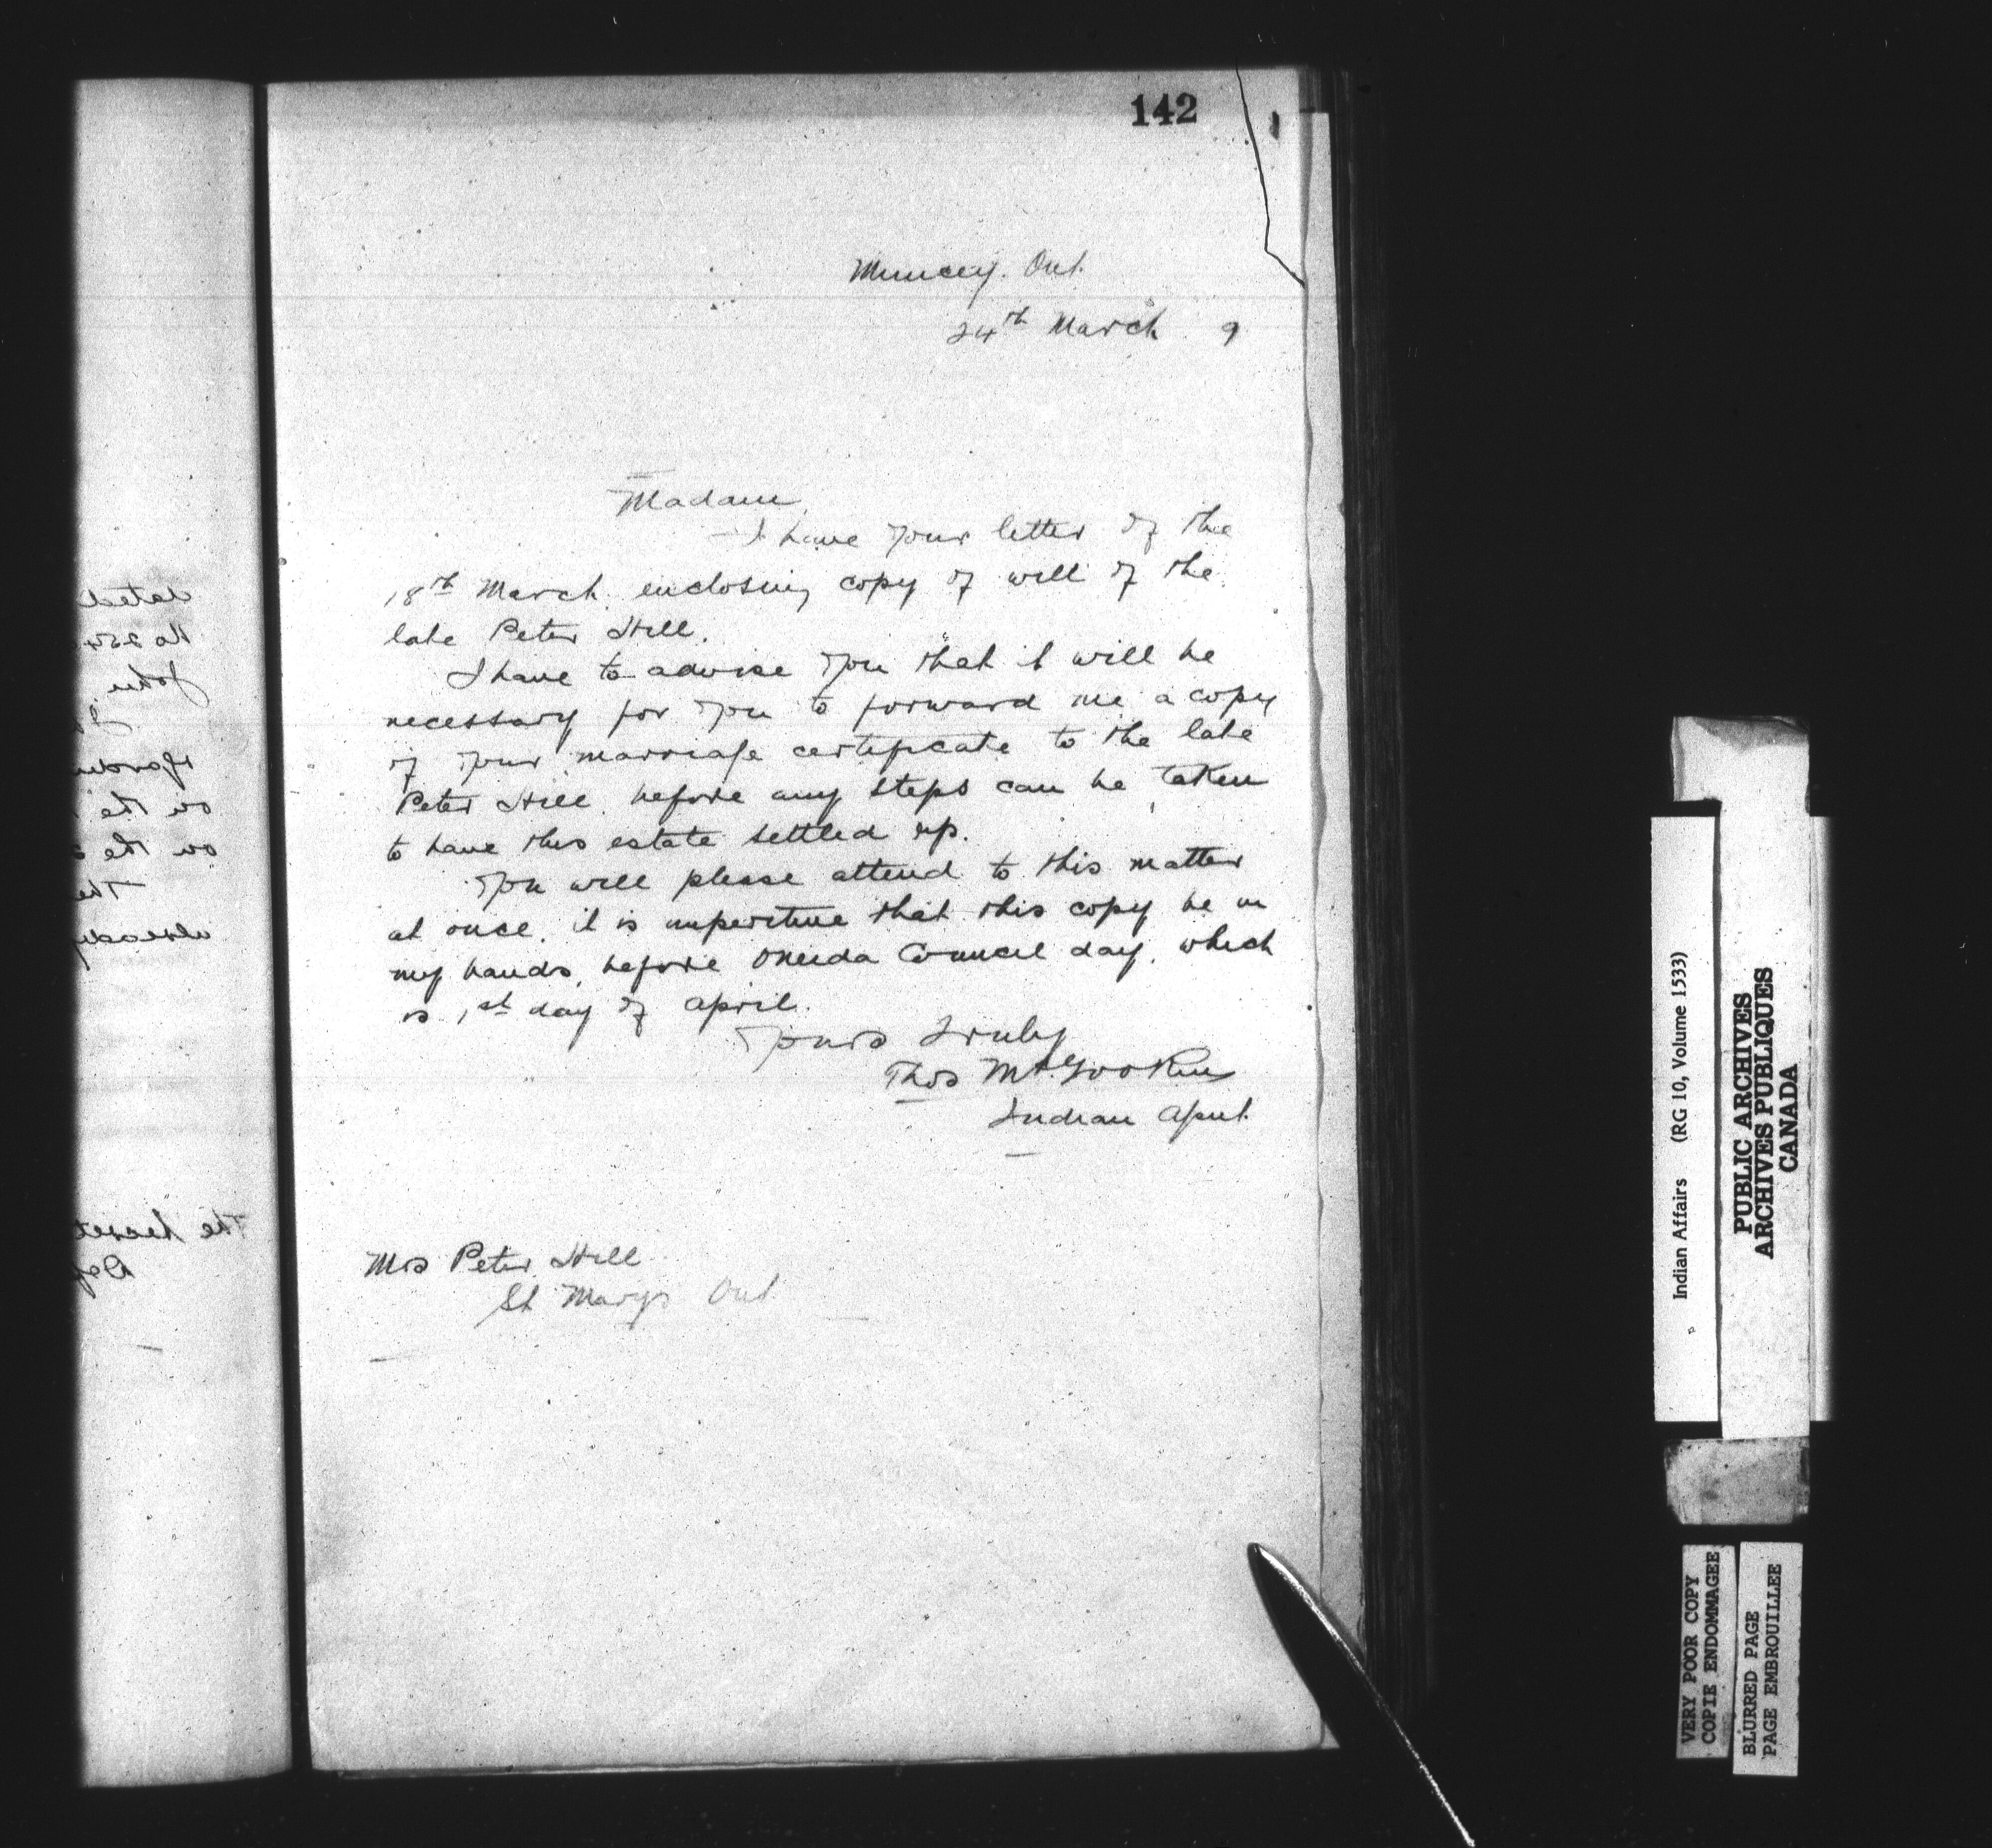 142
Muncey. Ont.
24th March 9
Madam,
I have your letter of the
18th March. enclosing copy of will of the
late Peter Hill.
I have to advise you that it will be
necessary for you to forward me a copy
of your marriage certificate to the late
Peter Hill. before any steps can be taken
to have this estate settled up.
You will please attend to this matter
at once. it is imperitive that this copy be in
my hands, before Oneida Council day. which
is 1st day of April.
Yours Truly
Thos McGookin
Indian Agent.
Mrs Peter Hill
St Marys Ont
Indian Affairs (RG 10, Volume 1533)
PUBLIC ARCHIVES
ARCHIVES PUBLIQUES
CANADA
VERY POOR COPY
COPIE ENDOMMAGEE
BLURRED PAGE
PAGE EMBROUILLEE